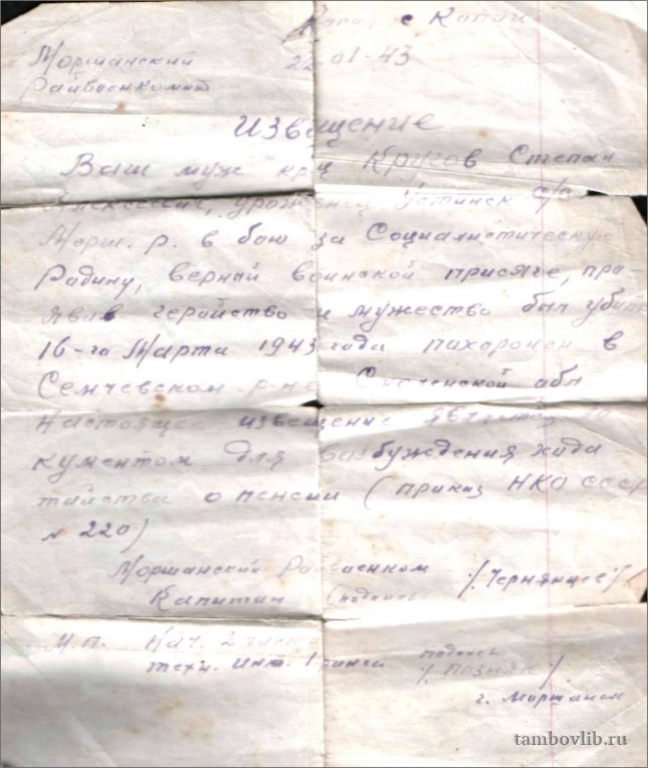 Копия с Копии
Моршанский 22 01-43
Райвоенкомат
Извещение
Ваш муж кр-ц Кругов Степан
уроженец Устинск с/с
Морш. р. в бою за Социалистическую
Родину, верный воинской присяге, про-
явив геройство и мужество был убит
16-го Марта 1943 года похоронен в
Семчевском р-не Смоленской обл.
Настоящее извещение является до
кументом для возбуждения хода
тайства о пенсии (приказ НКО СССР
№ 220)
Моршанский Райвоенком
Капитан (подпись) /Чернянцев/
М.П. Нач. 2 части
техн. инт. 1 ранга подпись
г. Моршанск
tambovlib.ru